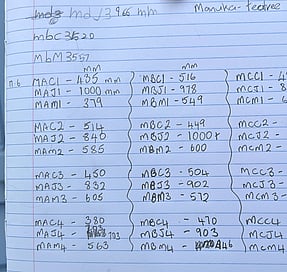 mdJ3 966 mm Manuka-teatree
mbc3520
mbM3557
mm mm
MAC1 - 495 mm MBC1 - 516 MCC1 -
MAJ1 - 1000 mm MBJ1 - 978 MCJ1 -
MAM1 - 379 MBM1 - 549 MCM1 -
MAC2 - 514 MBC2 - 449 MCC2 -
MAJ2 - 840 MBJ2 - 1000+ MCJ2 -
MAM2 - 585 MBM2 - 600 MCM2 -
MAC3 - 450 MBC3 - 504 MCC3 -
MAJ3 - 832 MBJ3 - 902 MCJ3 -
MAM3 - 605 MBM3 - 572 MCM3 -
MAC4 - 380 MBC4 - 470 MCC4
MAJ4 - 703 MBJ4 - 903 MCJ4
MAM4 - 563 MBM4 - 446 MCM4